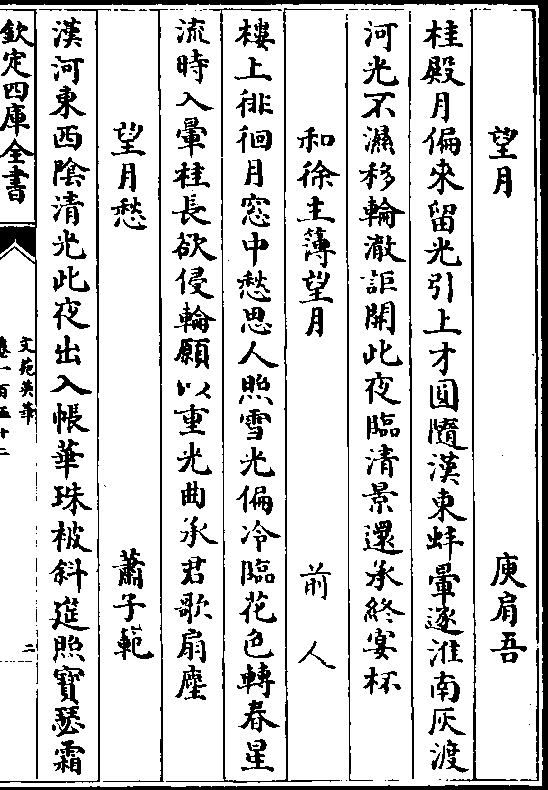 望月　庾肩吾
桂殿月偏來留光引上才圓隨漢東蚌暈逐淮南灰渡
河光不濕移輪轍詎開此夜臨清景還承終宴杯
和徐主薄望月　前人
樓上徘徊月窓中愁思人照雪光偏冷臨花色轉春星
流時入暈桂長欲侵輪願以重光曲承君歌扇塵
望月愁　蕭子範
漢河東西陰清光此夜出入帳華珠被斜筵照寶瑟霜
欽定四庫全書
文苑英華
卷一百五十二
二